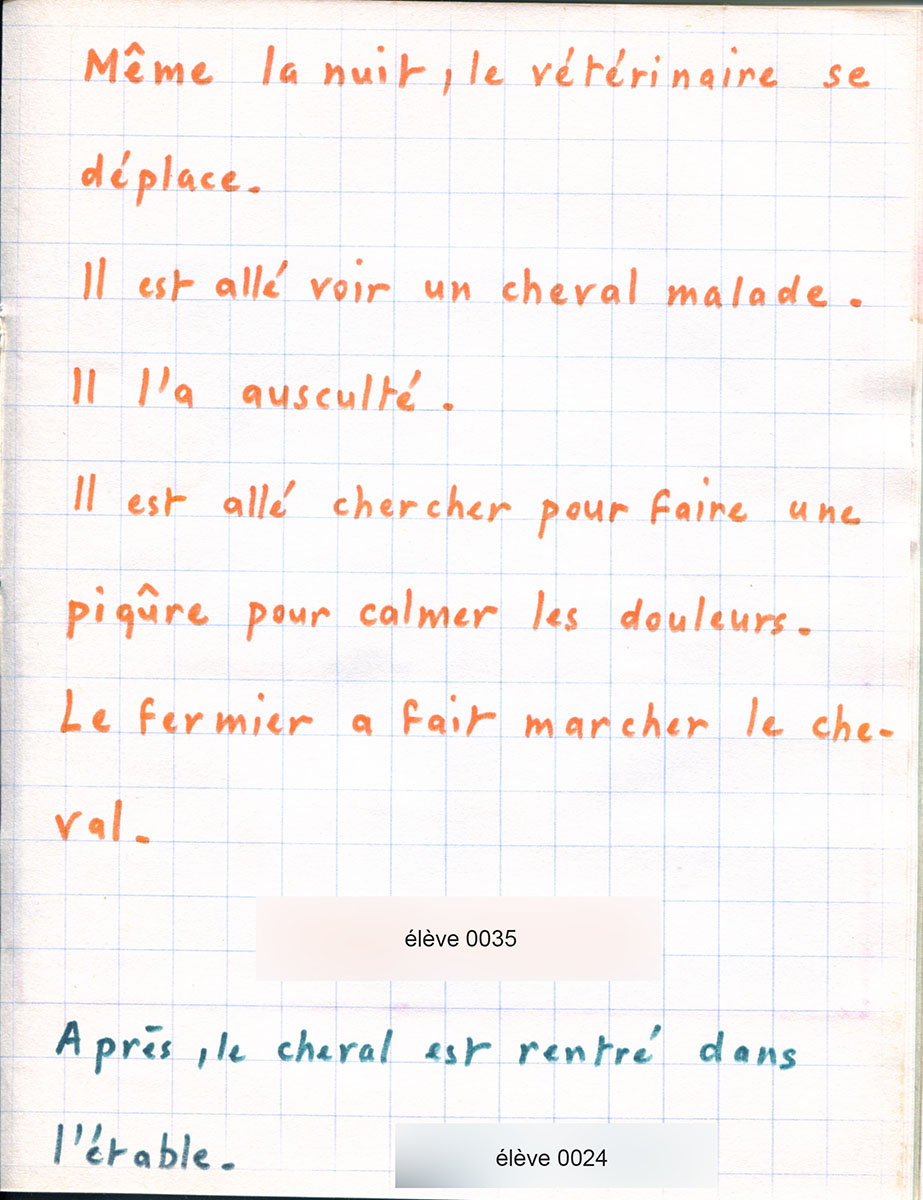 Même la nuit, le vétérinaire se
déplace.
Il est allé voir un cheval malade.
Il l'a ausculté.
Il est allé chercher pour faire une
piqûre pour calmer les douleurs.
Le fermier a fait marcher le che-
val.
élève 0035
Après, le cheval est rentré dans
l'étable.
élève 0024